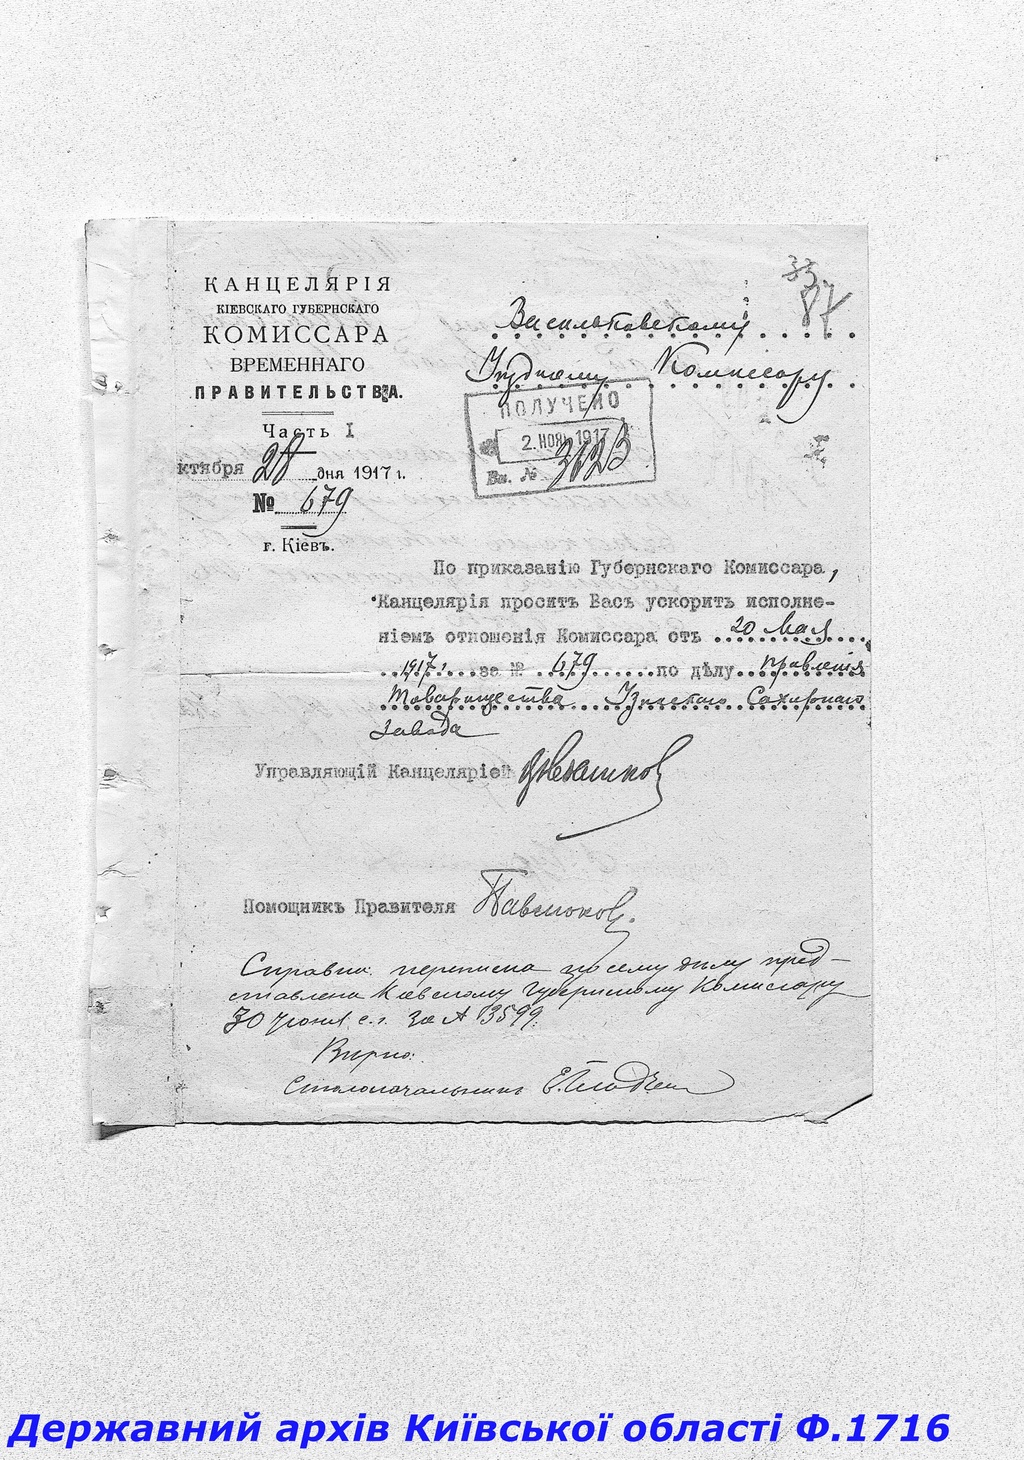 КАНЦЕЛЯРІЯ
КІЕВСКАГО ГУБЕРНСКАГО
КОМИССАРА
ВРЕМЕННАГО
ПРАВИТЕЛЬСТВА.
Часть I
ктября 28 дня 1917 г.
№ 679
г. Кіевъ.
33
87
Васильковскому
Уѣздному Комиссару
ПОЛУЧЕНО
2. НОЯ. 1917
Вх. № 3123
По приказанію Губернскаго Комиссара,
Канцелярія проситъ Васъ ускорить исполне-
ніемъ отношенія Комиссара отъ 20 Мая
1917 г. за № 679 по дѣлу правленія
Товарищества Узинскаго Сахарнаго
Завода
Управляющій Канцеляріей
Помощникъ Правителя
Справка: переписка по сему дѣлу пред-
ставлена Кіевскому Губернскому Комиссару
30 Іюня с. г. за № 13599.
Вѣрно:
Столоначальникъ
Державний архів Київської області Ф.1716